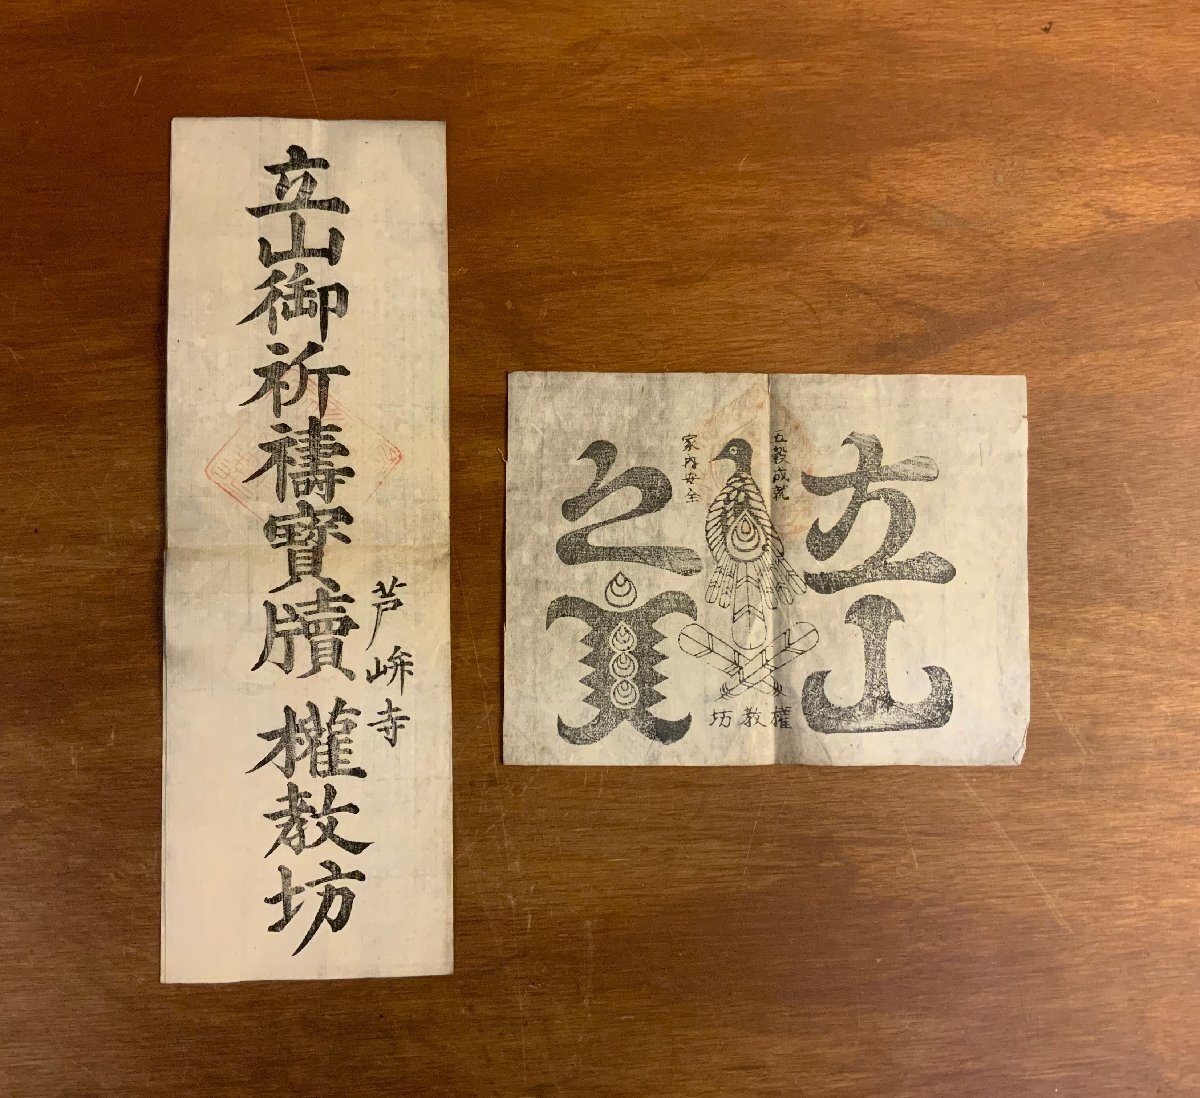 立山御祈禱寶牘 權教坊
芦峅寺
立山
五穀成就
家内安全
之寶
權教坊